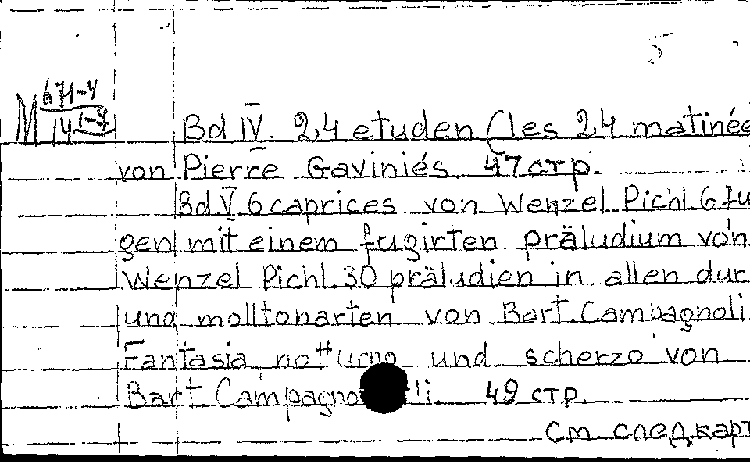 5
М 671-4
14 1-7
Bd IV. 24 etuden (les 24 matinée
von Pierre Gaviniés 47 стр.
Bd.V 6 caprices von Wenzel Pichl. 6 fu
gen mit einem fugirten präludium von
Wenzel Pichl. 30 präludien in allen dur
und molltonarten von Bart. Campagnoli
Fantasia notturno und scherzo von
Bart Campagnoli. 49 стр.
См след карт